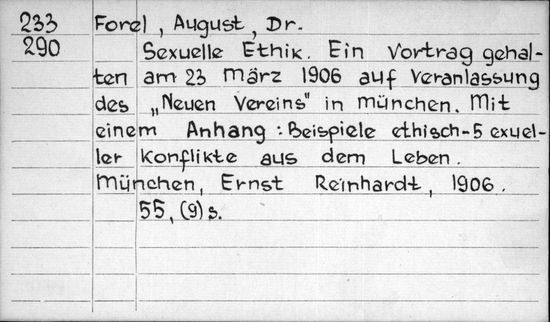 233 Forel, August, Dr.
290 Sexuelle Ethik. Ein Vortrag gehal-
ten am 23 März 1906 auf Veranlassung
des „Neuen Vereins" in München. Mit
einem Anhang: Beispiele ethisch-sexuel-
ler Konflikte aus dem Leben.
München, Ernst Reinhardt, 1906.
55, (9) s.